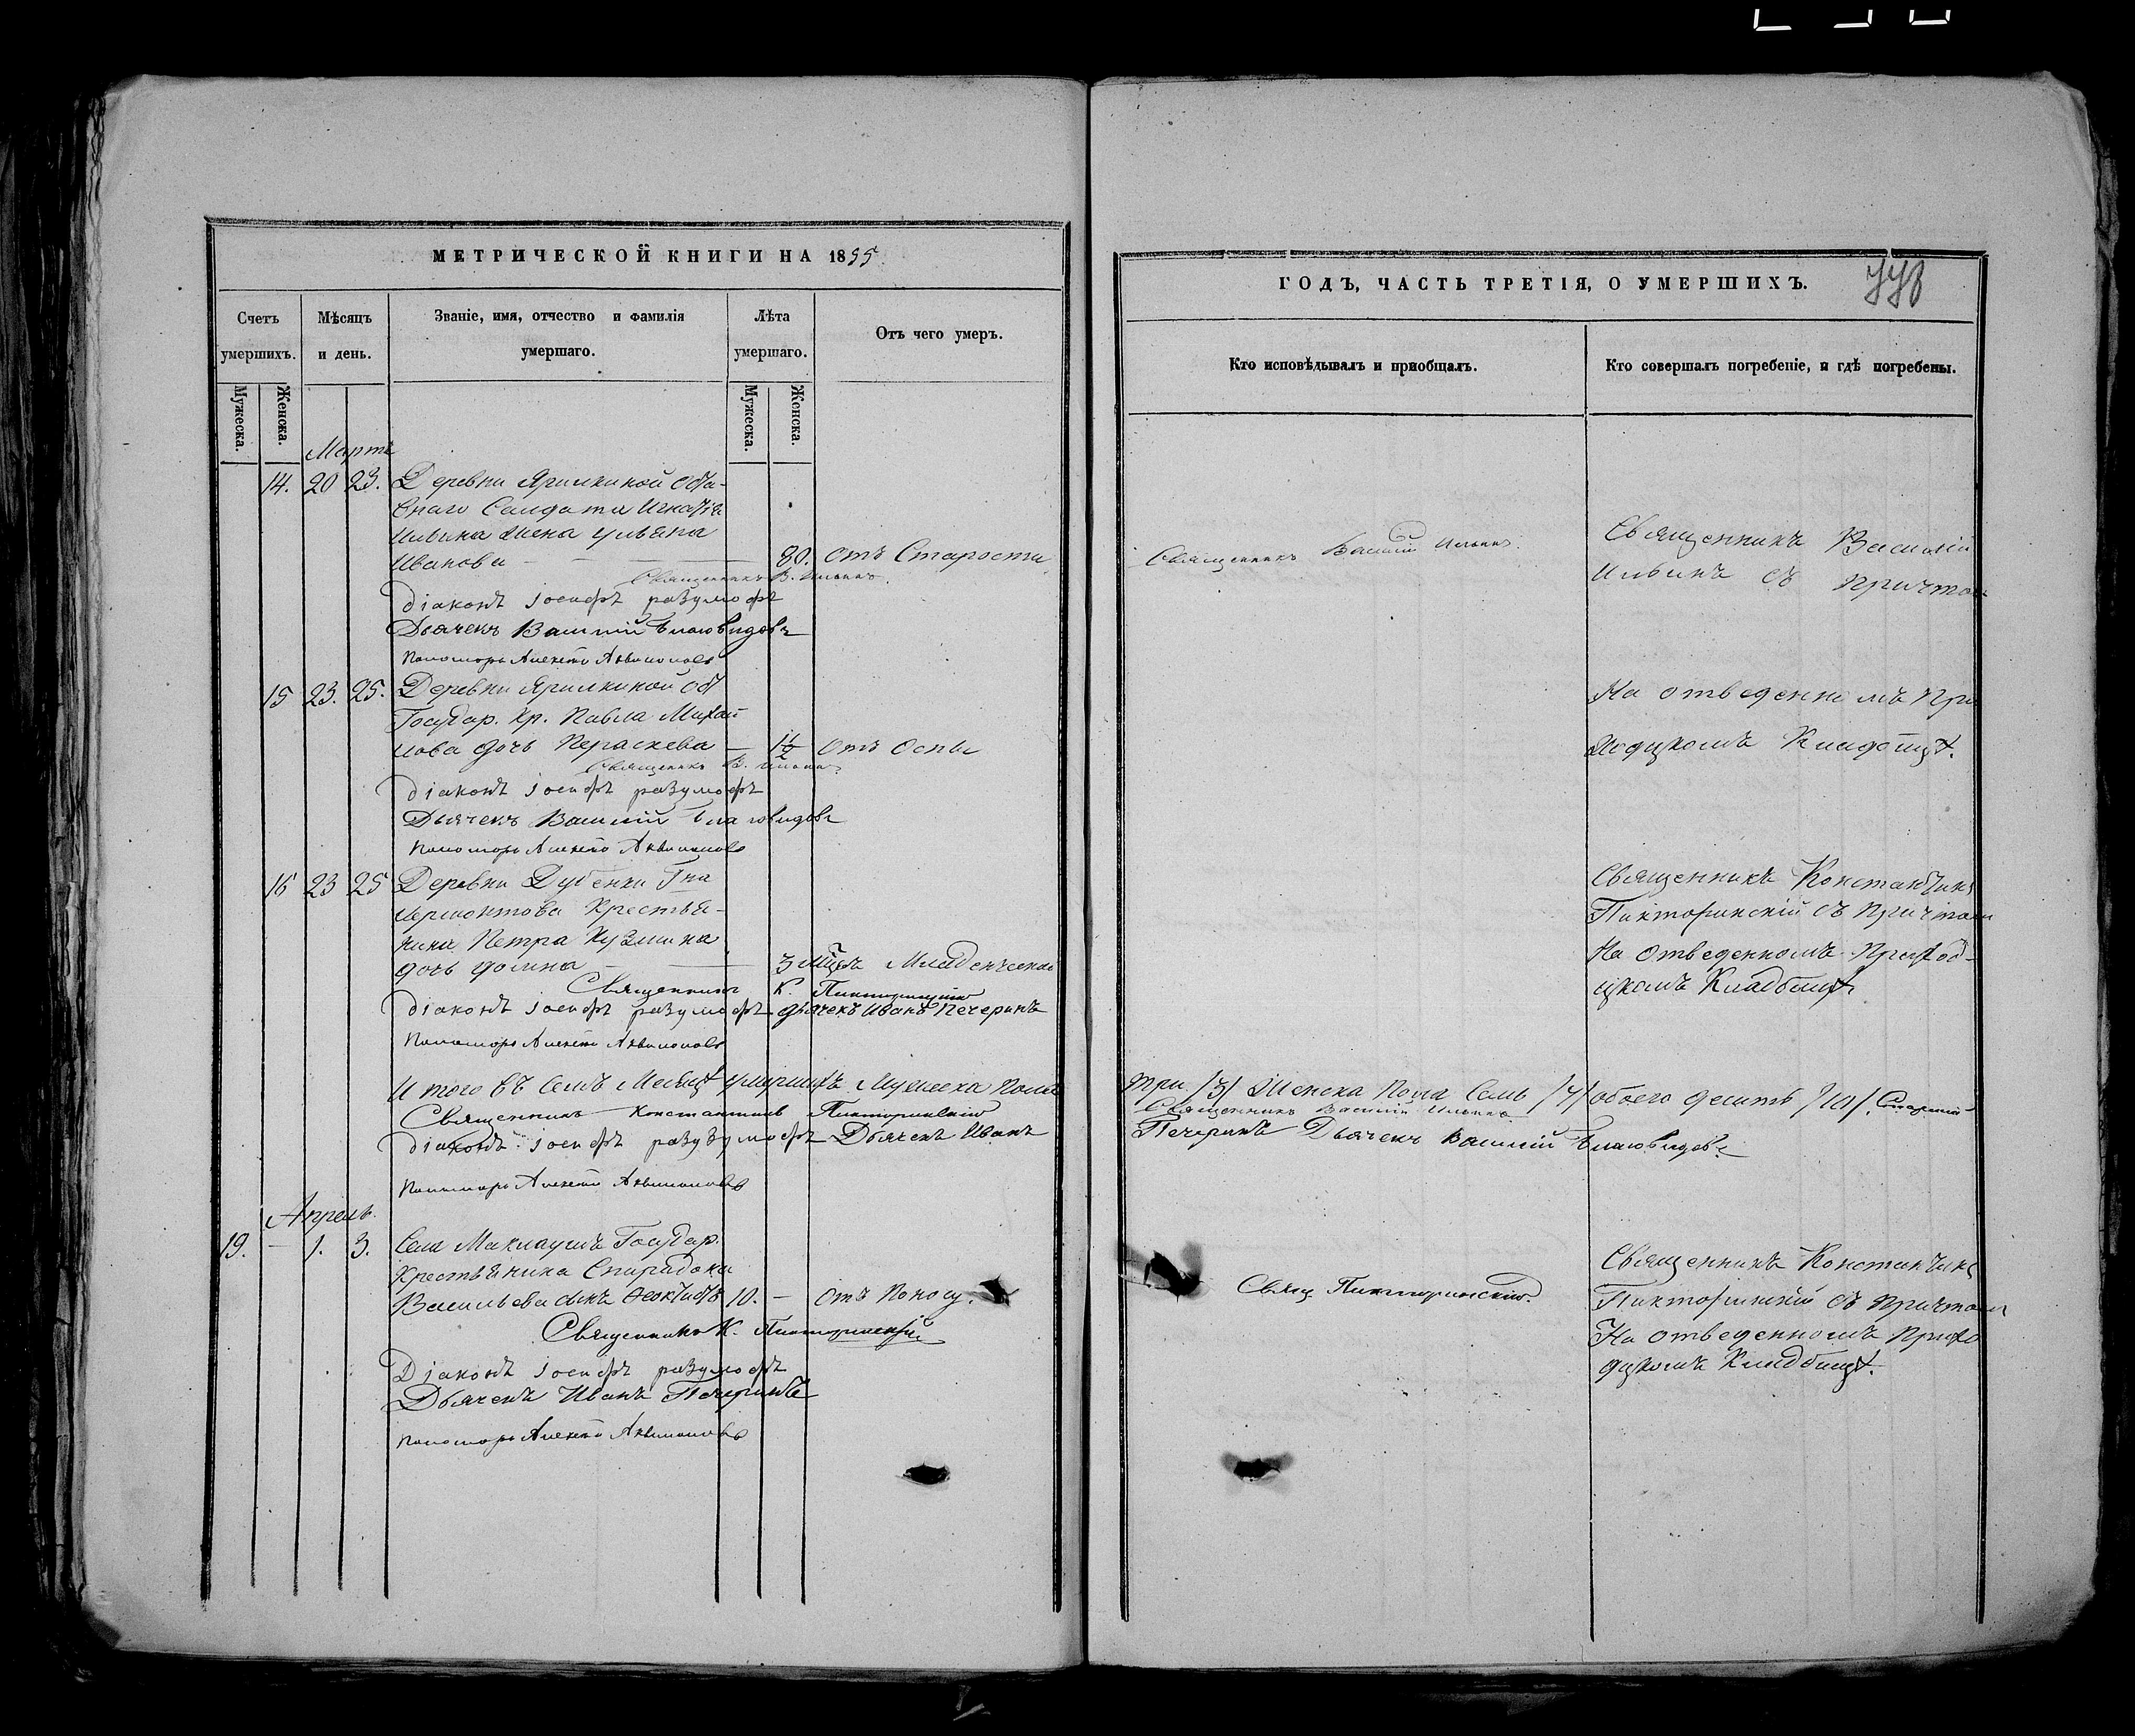 МЕТРИЧЕСКОЙ КНИГИ НА 1855
Счетъ умершихъ.
Мѣсяцъ и день.
Званіе, имя, отчество и фамилія умершаго.
Лѣта умершаго.
Отъ чего умеръ.
Мужеска.
Женска.
Мужеска.
Женска.
Мартъ
14. 20 23. Деревни Ярилкиной
Солдата Игнатія
Ильина жена Ульяна
Иванова 80. отъ Старости
Священникъ В. Ильинъ.
діаконъ іосифъ разумофъ
Дьячекъ Василій Благовидовъ
Пономарь Алексѣй Аквилоновъ
15 23. 25. Деревни Ярилкиной
Государ. Кр. Павла Михай
лова дочь Пераскева — 1½ отъ Оспы
Священникъ В. Ильинъ
діаконъ іосифъ разумофъ
Дьячекъ Василій Благовидовъ
Пономарь Алексѣй Аквилоновъ
16 23 25 Деревни Дубенки Гна
Лермонтова Крестья-
нина Петра Кузмина
дочь Домна 3 мѣсъ Младенческой
Священникъ К. Пикторинскій
діаконъ іосифъ разумофъ дьячекъ Иванъ Печеринъ
Пономарь Алексѣй Аквилоновъ
Итого въ семъ Месяцѣ умершихъ Мужеска пола
Священникъ Константинъ Пикторинскій
діаконъ іосифъ разузумофъ Дьячекъ Иванъ
Пономарь Алексѣй Аквилоновъ
Апрель.
19. — 1. 3. Села Маклаушъ Государ.
Крестьянина Спиридона
Васильева сынъ Феоктистъ 10. — отъ поносу.
Священникъ К. Пикторинскій
Діаконъ іосифъ разумофъ
Дьячекъ Иванъ Печеринъ
Пономарь Алексѣй Аквилоновъ
ГОДЪ, ЧАСТЬ ТРЕТІЯ, О УМЕРШИХЪ.
Кто исповѣдывалъ и пріобщалъ.
Кто совершалъ погребеніе, и гдѣ погребены.
Священникъ Василій Ильинъ.
Священникъ Василій
Ильинъ съ причтомъ
На отведенномъ При
ходскомъ Кладбищѣ.
Священникъ Константинъ
Пикторинскій съ причтомъ
На отведенномъ Приход-
скомъ Кладбищѣ
три /3/ Женска пола Семь /7/ обоего десять /10/.
Священникъ Василій Ильинъ
Печеринъ Дьячекъ Василій Благовидовъ
Свящ. Пикторинскій.
Священникъ Константинъ
Пикторинскій съ причтомъ
На отведенномъ Прихо
дскомъ Кладбищѣ.